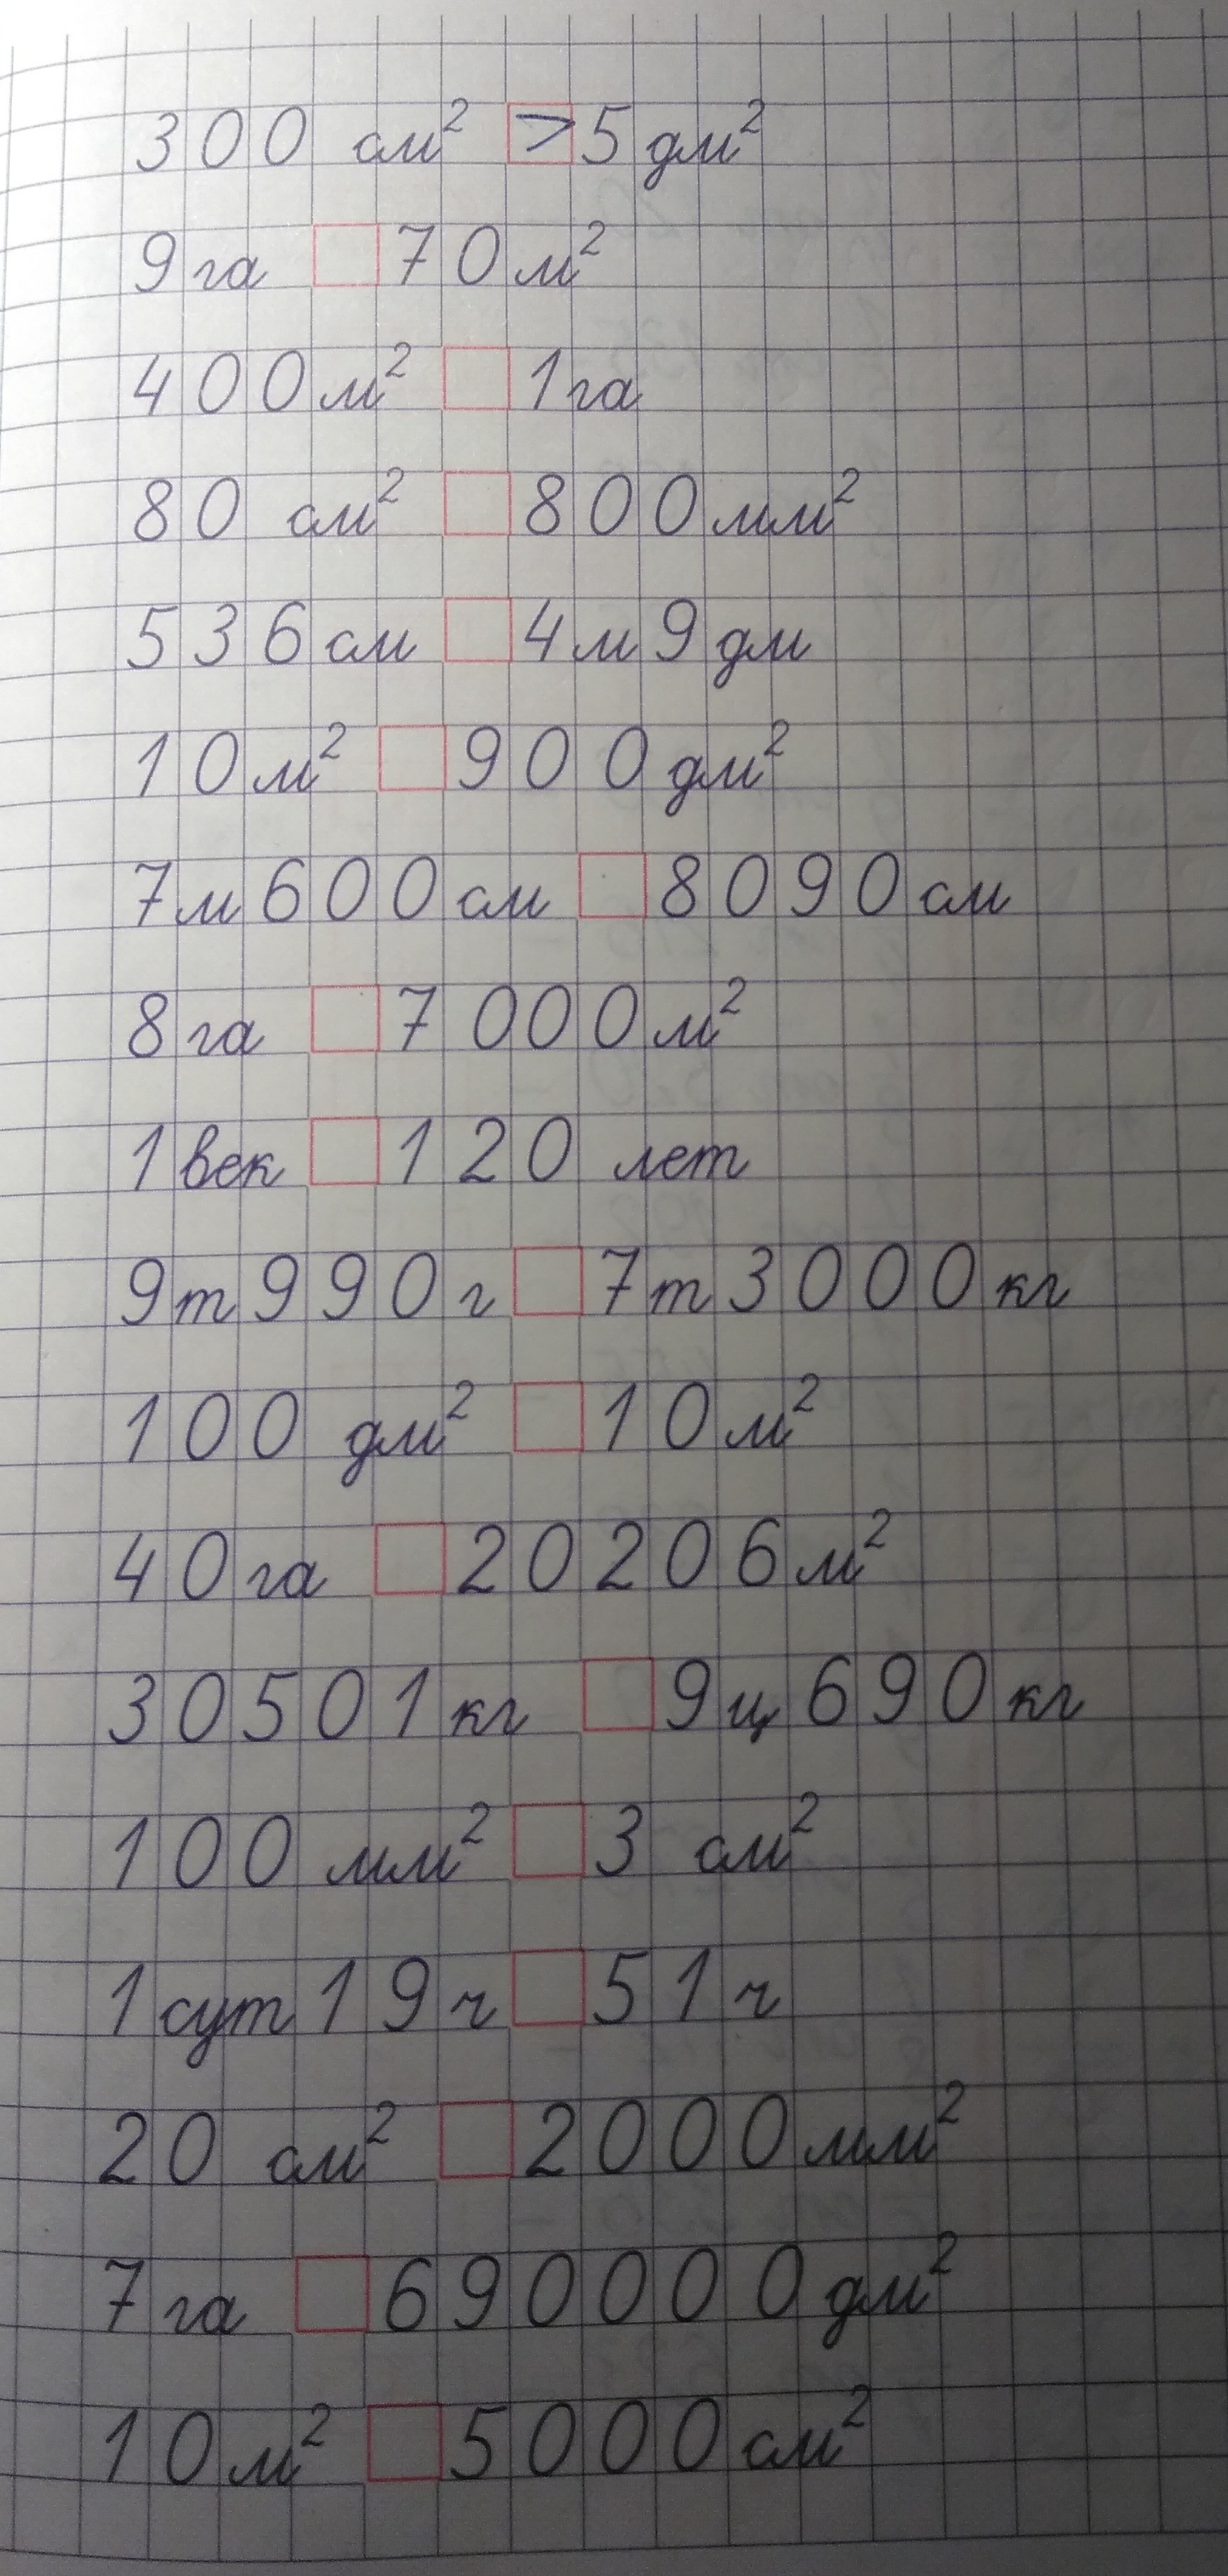 300 см² > 5 дм²
9 га □ 70 м²
400 м² □ 1 га
80 см² □ 800 мм²
536 см □ 4 м 9 дм
10 м² □ 900 дм²
7 м 600 см □ 8090 см
8 га □ 7000 м²
1 век □ 120 лет
9 т 990 г □ 7 т 3000 кг
100 дм² □ 10 м²
40 га □ 20206 м²
30501 кг □ 9 ц 690 кг
100 мм² □ 3 см²
1 сут 19 ч □ 51 ч
20 см² □ 2000 мм²
7 га □ 690000 дм²
10 м² □ 5000 см²